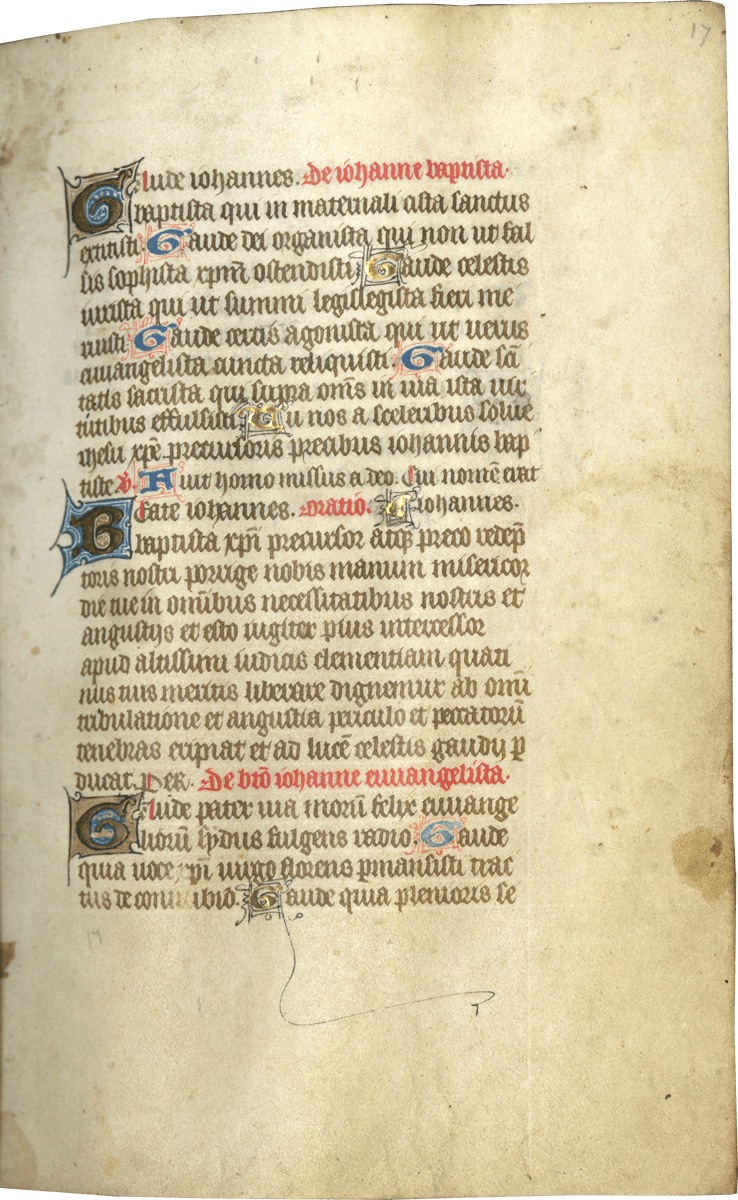 17
Gaude iohannes. De iohanne baptista.
baptista qui in maternali cista sanctus
extitisti. Gaude dei organista qui non ut fal
sis sophista xpm ostendisti Gaude celestis
iurista qui ut summi legislegista fieri me
ruisti Gaude certis agonista qui ut uerus
euuangelista cuncta reliquisti. Gaude scī
tatis sacrista qui supra oms in uia ista uir
tutibus effulsisti Tu nos a sceleribus solue
ihesu xpe precursoris precibus iohannis bap
tiste v. Fuit homo missus a deo. Cui nomē erat
Beate iohannes. Oratio. iohannes.
baptista xpi precursor atq preco redēp
toris nostri porrige nobis manum misericor
die tue in omibus necessitatibus nostris et
angustijs et esto iugiter pius intercessor
apud altissimi iudicis clementiam quati
nus tuis meritis liberare dignemur ab omi
tribulatione et angustia periculo et peccatorū
tenebras eripiat et ad lucē celestis gaudij p
ducat. Per. De bto iohanne euuangelista.
Gaude pater uia morū felix euuange
liorū sydus fulgens radio. Gaude
quia uoce xpi uirgo florens pmansisti trac
tus de conubio. Gaude quia plenioris se
17